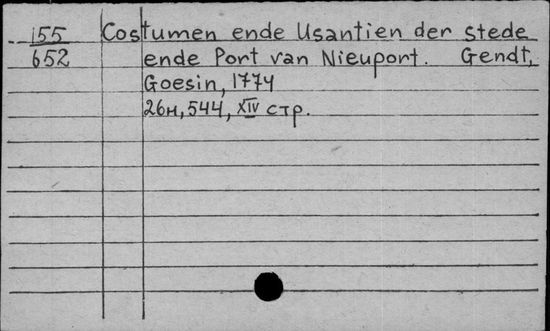 155 Costumen ende Usantien der stede
652 ende Port van Nieuport. Gendt,
Goesin, 1774
26н, 544, XIV стр.